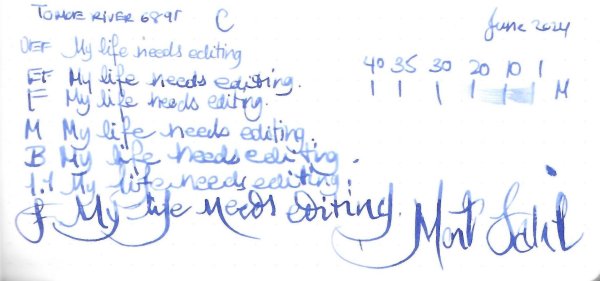 TOMOE RIVER 68gr C June 2024
OEF My life needs editing
EF My life needs editing.
F My life needs editing.
M My life needs editing.
B My life needs editing.
1.1 My life needs editing.
My life needs editing.
40 35 30 20 10 1
M
Mont